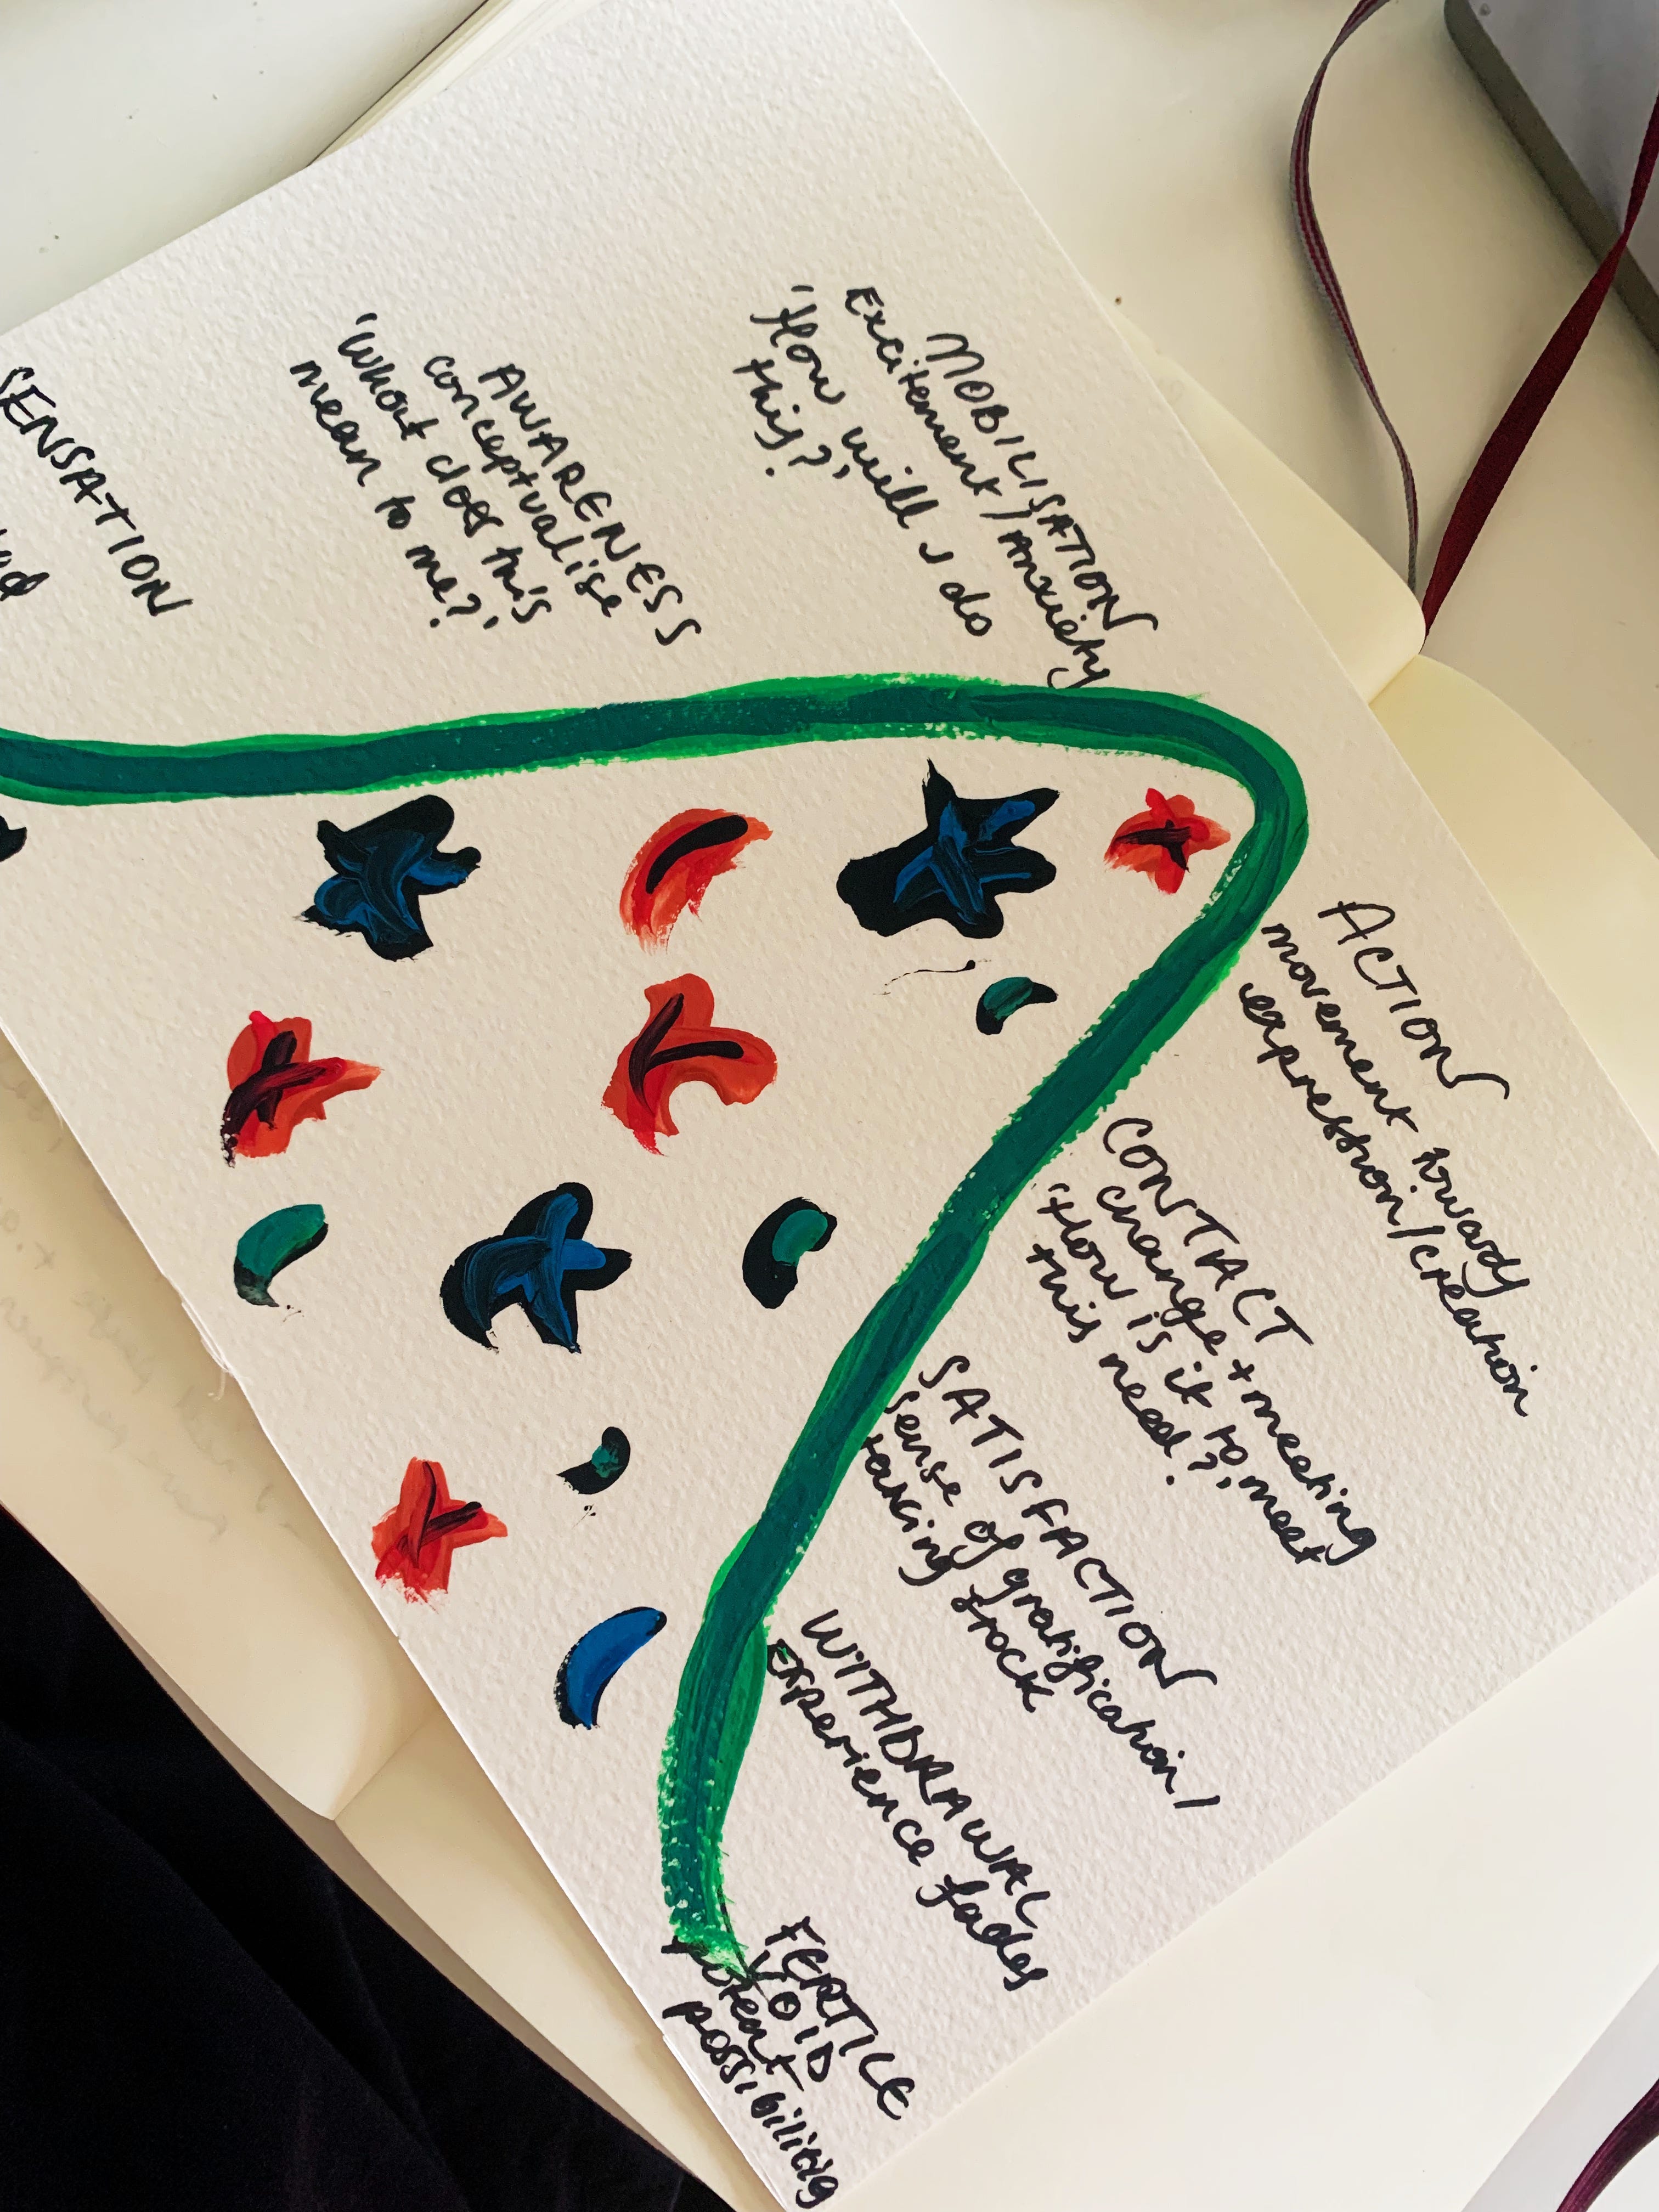 SENSATION
AWARENESS
conceptualise
'What does this
mean to me?'
MOBILISATION
Excitement/Anxiety
'How will I do
this?'
ACTION
movement towards
expression/creation
CONTACT
change + meeting
'How is it to meet
this need?'
SATISFACTION
sense of gratification/
taking stock
WITHDRAWAL
Experience fades
FERTILE
VOID
potent
possibilities